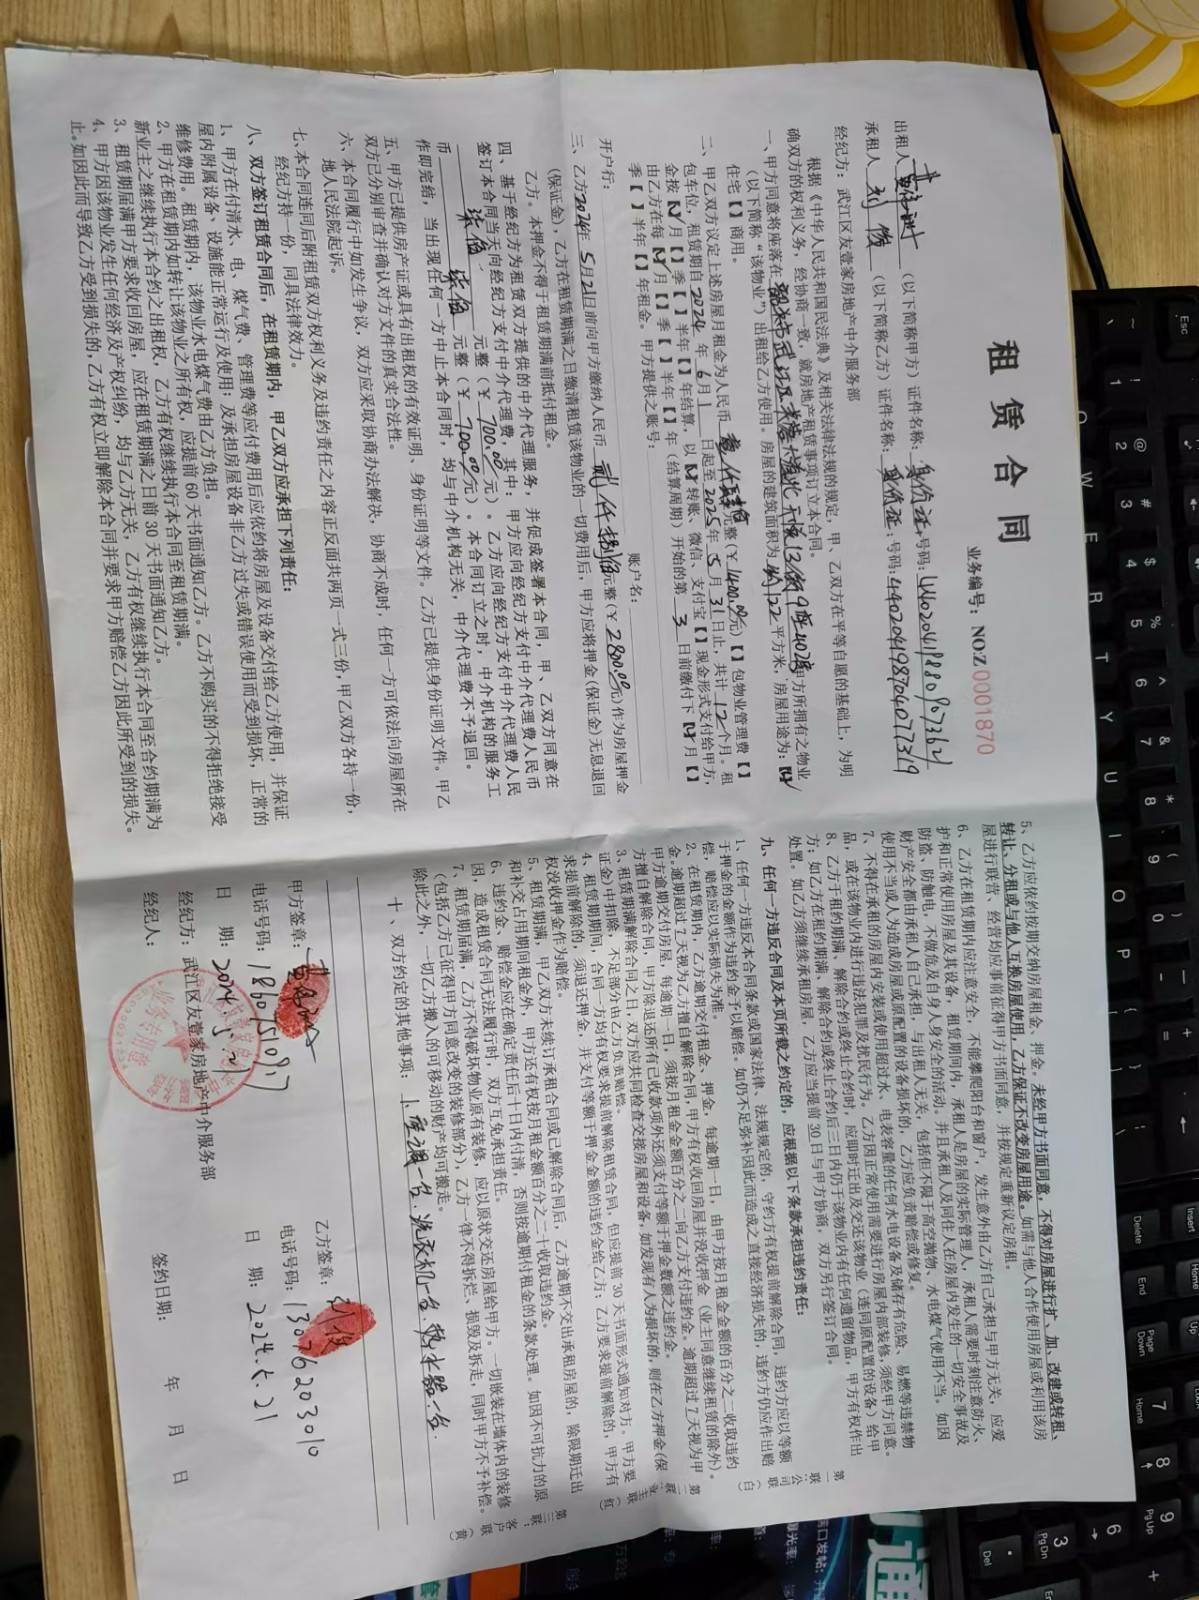 租 赁 合 同
业务编号：NO:Z 0001870
出租人（以下简称甲方）证件名称：身份证 号码：
承租人（以下简称乙方）证件名称：身份证 号码：
经纪方：武江区友壹家房地产中介服务部
根据《中华人民共和国民法典》及相关法律法规的规定，甲、乙双方在平等自愿的基础上，为明
确双方的权利义务，经协商一致，就房地产租赁事项订立本合同。
一、甲方同意将座落在 甲方所拥有之物业
（以下简称“该物业”）出租给乙方使用。房屋的建筑面积为 平方米，房屋用途为：【√】
住宅【 】商用。
二、甲乙双方议定上述房屋月租金为人民币 元整（¥ 1400.00元）【 】包物业管理费【 】
包车位，租赁期自 2024 年 6 月 1 日起至 2025 年 5 月 31 日止，共计 12 个月。租
金按【√】月【 】季【 】半年【 】年结算，以【√】转账、微信、支付宝【 】现金形式支付给甲方，
由乙方在每【√】月【 】季【 】半年【 】年（结算周期）开始的第 3 日前缴付下【√】月【 】
季【 】半年【 】年租金。甲方提供之账号：
开户行： 账户名：
三、乙方2024年 5月21日前向甲方缴纳人民币 贰仟捌佰 元整（¥ 2800.00元）作为房屋押金
（保证金），乙方在租赁期满之日缴清租赁该物业的一切费用后，甲方应将押金（保证金）无息退回
乙方。本押金不得于租赁期满前抵付租金。
四、基于经纪方为租赁双方提供的中介代理服务，并促成签署本合同，甲、乙双方同意在
签订本合同当天向经纪方支付中介代理费，其中：甲方应向经纪方支付中介代理费人民币
柒佰 元整（¥ 700.00 元）。乙方应向经纪方支付中介代理费人民
币 柒佰 元整（¥ 700.00 元）。本合同订立之时，中介机构的服务工
作即完结，当出现任何一方中止本合同时，均与中介机构无关，中介代理费不予退回。
五、甲方已提供房产证或具有出租权的有效证明、身份证明等文件。乙方已提供身份证明文件。甲乙
双方已分别审查并确认对方文件的真实合法性。
六、本合同履行中如发生争议，双方应采取协商办法解决，协商不成时，任何一方可依法向房屋所在
地人民法院起诉。
七、本合同连同后附租赁双方权利义务及违约责任之内容正反面共两页一式三份，甲乙双方各持一份，
经纪方持一份，同具法律效力。
八、双方签订租赁合同后，在租赁期内，甲乙双方应承担下列责任：
1、甲方在付清水、电、煤气费、管理费等应付费用后应依约将房屋及设备交付给乙方使用，并保证
屋内附属设备、设施能正常运行及使用；及承担房屋设备非乙方过失或错误使用而受到损坏，正常的
维修费用。租赁期内，该物业水电煤气费由乙方负担。
2、甲方在租赁期内如转让该物业之所有权，应提前60天书面通知乙方。乙方不购买的不得拒绝接受
新业主之继续执行本合约之出租权，乙方有权继续执行本合同至租赁期满。
3、租赁期届满甲方要求收回房屋，应在租赁期满之日前30天书面通知乙方。
4、甲方因该物业发生任何经济及产权纠纷，均与乙方无关，乙方有权继续执行本合同至合约期满为
止。如因此而导致乙方受到损失的，乙方有权立即解除本合同并要求甲方赔偿乙方因此所受到的损失。
5、乙方应依约按期交纳房屋租金、押金。未经甲方书面同意，不得对房屋进行扩、加、改建或转租、
转让、分租或与他人互换房屋使用，乙方保证不改变房屋用途。如需与他人合作使用房屋或利用该房
屋进行联营、经营均应事前征得甲方书面同意，并按规定重新议定房租。
6、乙方在租赁期内应注意安全，不能攀爬阳台和窗户，发生意外由乙方自己承担与甲方无关，应爱
护和正常使用房屋及其设备，租赁期间内，承租人是房屋的实际管理人，承租人需要时刻注意防火、
防盗、防触电，不做危及自身人身安全的活动，并且承租人及同住人在房屋内发生的一切安全事故及
财产安全都由承租人自己承担，与出租人无关，包括但不限于高空抛物、水电煤气使用不当。如因
使用不当或人为造成房屋或原配置的设备损坏的，乙方应负责赔偿或修复。
7、不得在承租的房屋内安装或使用超过水、电表容量的任何水电设备及储存有危险、易燃等违禁物
品，或在该物业内进行违法犯罪及扰民行为。乙方因正常使用需要进行房屋内部装修，须经甲方同意。
8、乙方于租约期满、解除合约或终止合约时，应即时迁出及交还该物业（连同原配置的设备）给甲
方；如乙方在租约期满、解除合约或终止合约后三日内仍于该物业内有任何遗留物品，甲方有权作出
处置。如乙方须继续承租房屋，乙方应当提前30日与甲方协商，双方另行签订合同。
九、任何一方违反合同及本页所载之约定的，应根据以下条款承担违约责任：
1、任何一方违反本合同条款或国家法律、法规规定的，守约方有权提前解除合同，违约方应以等额
于押金的金额作为违约金予以赔偿。如仍不足弥补因此而造成之直接经济损失的，违约方仍应作出赔
偿，赔偿应以实际损失为准。
2、在租赁期内，乙方逾期交付租金、押金，每逾期一日，由甲方按月租金金额的百分之二收取违约
金。逾期超过7天视为乙方擅自解除合同，甲方有权收回房屋并没收押金（业主同意继续租赁的除外）。
甲方逾期交付房屋，每逾期一日，须按月租金金额百分之二向乙方支付违约金。逾期超过7天视为甲
方擅自解除合同，甲方除退还所有已收款项外还须支付等额于押金数额之违约金。
3、租赁期满解除合同之日，双方应共同检查交接房屋和设备，如发现有人为损坏的，则在乙方押金（保
证金）中扣除，不足部分由乙方负责赔偿。
4、租赁期间，合同一方均有权要求提前解除租赁合同，但应提前30天书面形式通知对方。甲方要
求提前解除的，须退还押金，并支付等额于押金金额的违约金给乙方；乙方要求提前解除的，甲方有
权没收押金作为赔偿。
5、租赁期满，甲乙双方未续订承租合同或已解除合同后，乙方逾期不交出承租房屋的，除限期迁出
和补交占用期间租金外，甲方还有权按月租金额百分之二十收取违约金。
6、违约金、赔偿金应在确定责任后十日内付清，否则按逾期付租金的条款处理。如因不可抗力的原
因，造成租赁合同无法履行时，双方互免承担责任。
7、租赁期届满，乙方不得破坏物业原有装修，应以原状交还房屋给甲方。一切嵌装在墙体内的装修
（包括乙方已征得甲方同意改变的装修部分），乙方一律不得拆烂、损毁及拆走，同时甲方不予补偿。
除此之外，一切乙方搬入的可移动的财产均可搬走。
十、双方约定的其他事项： 洗衣机一台、热水器一台.
第一联：公司联（白） 第二联：业主联（红） 第三联：客户联（黄）
甲方签章： 乙方签章：
电话号码：18601510917 电话号码：13076203010
日 期： 日 期：2024.5.21
经纪方：武江区友壹家房地产中介服务部
经纪人： 签约日期： 年 月 日